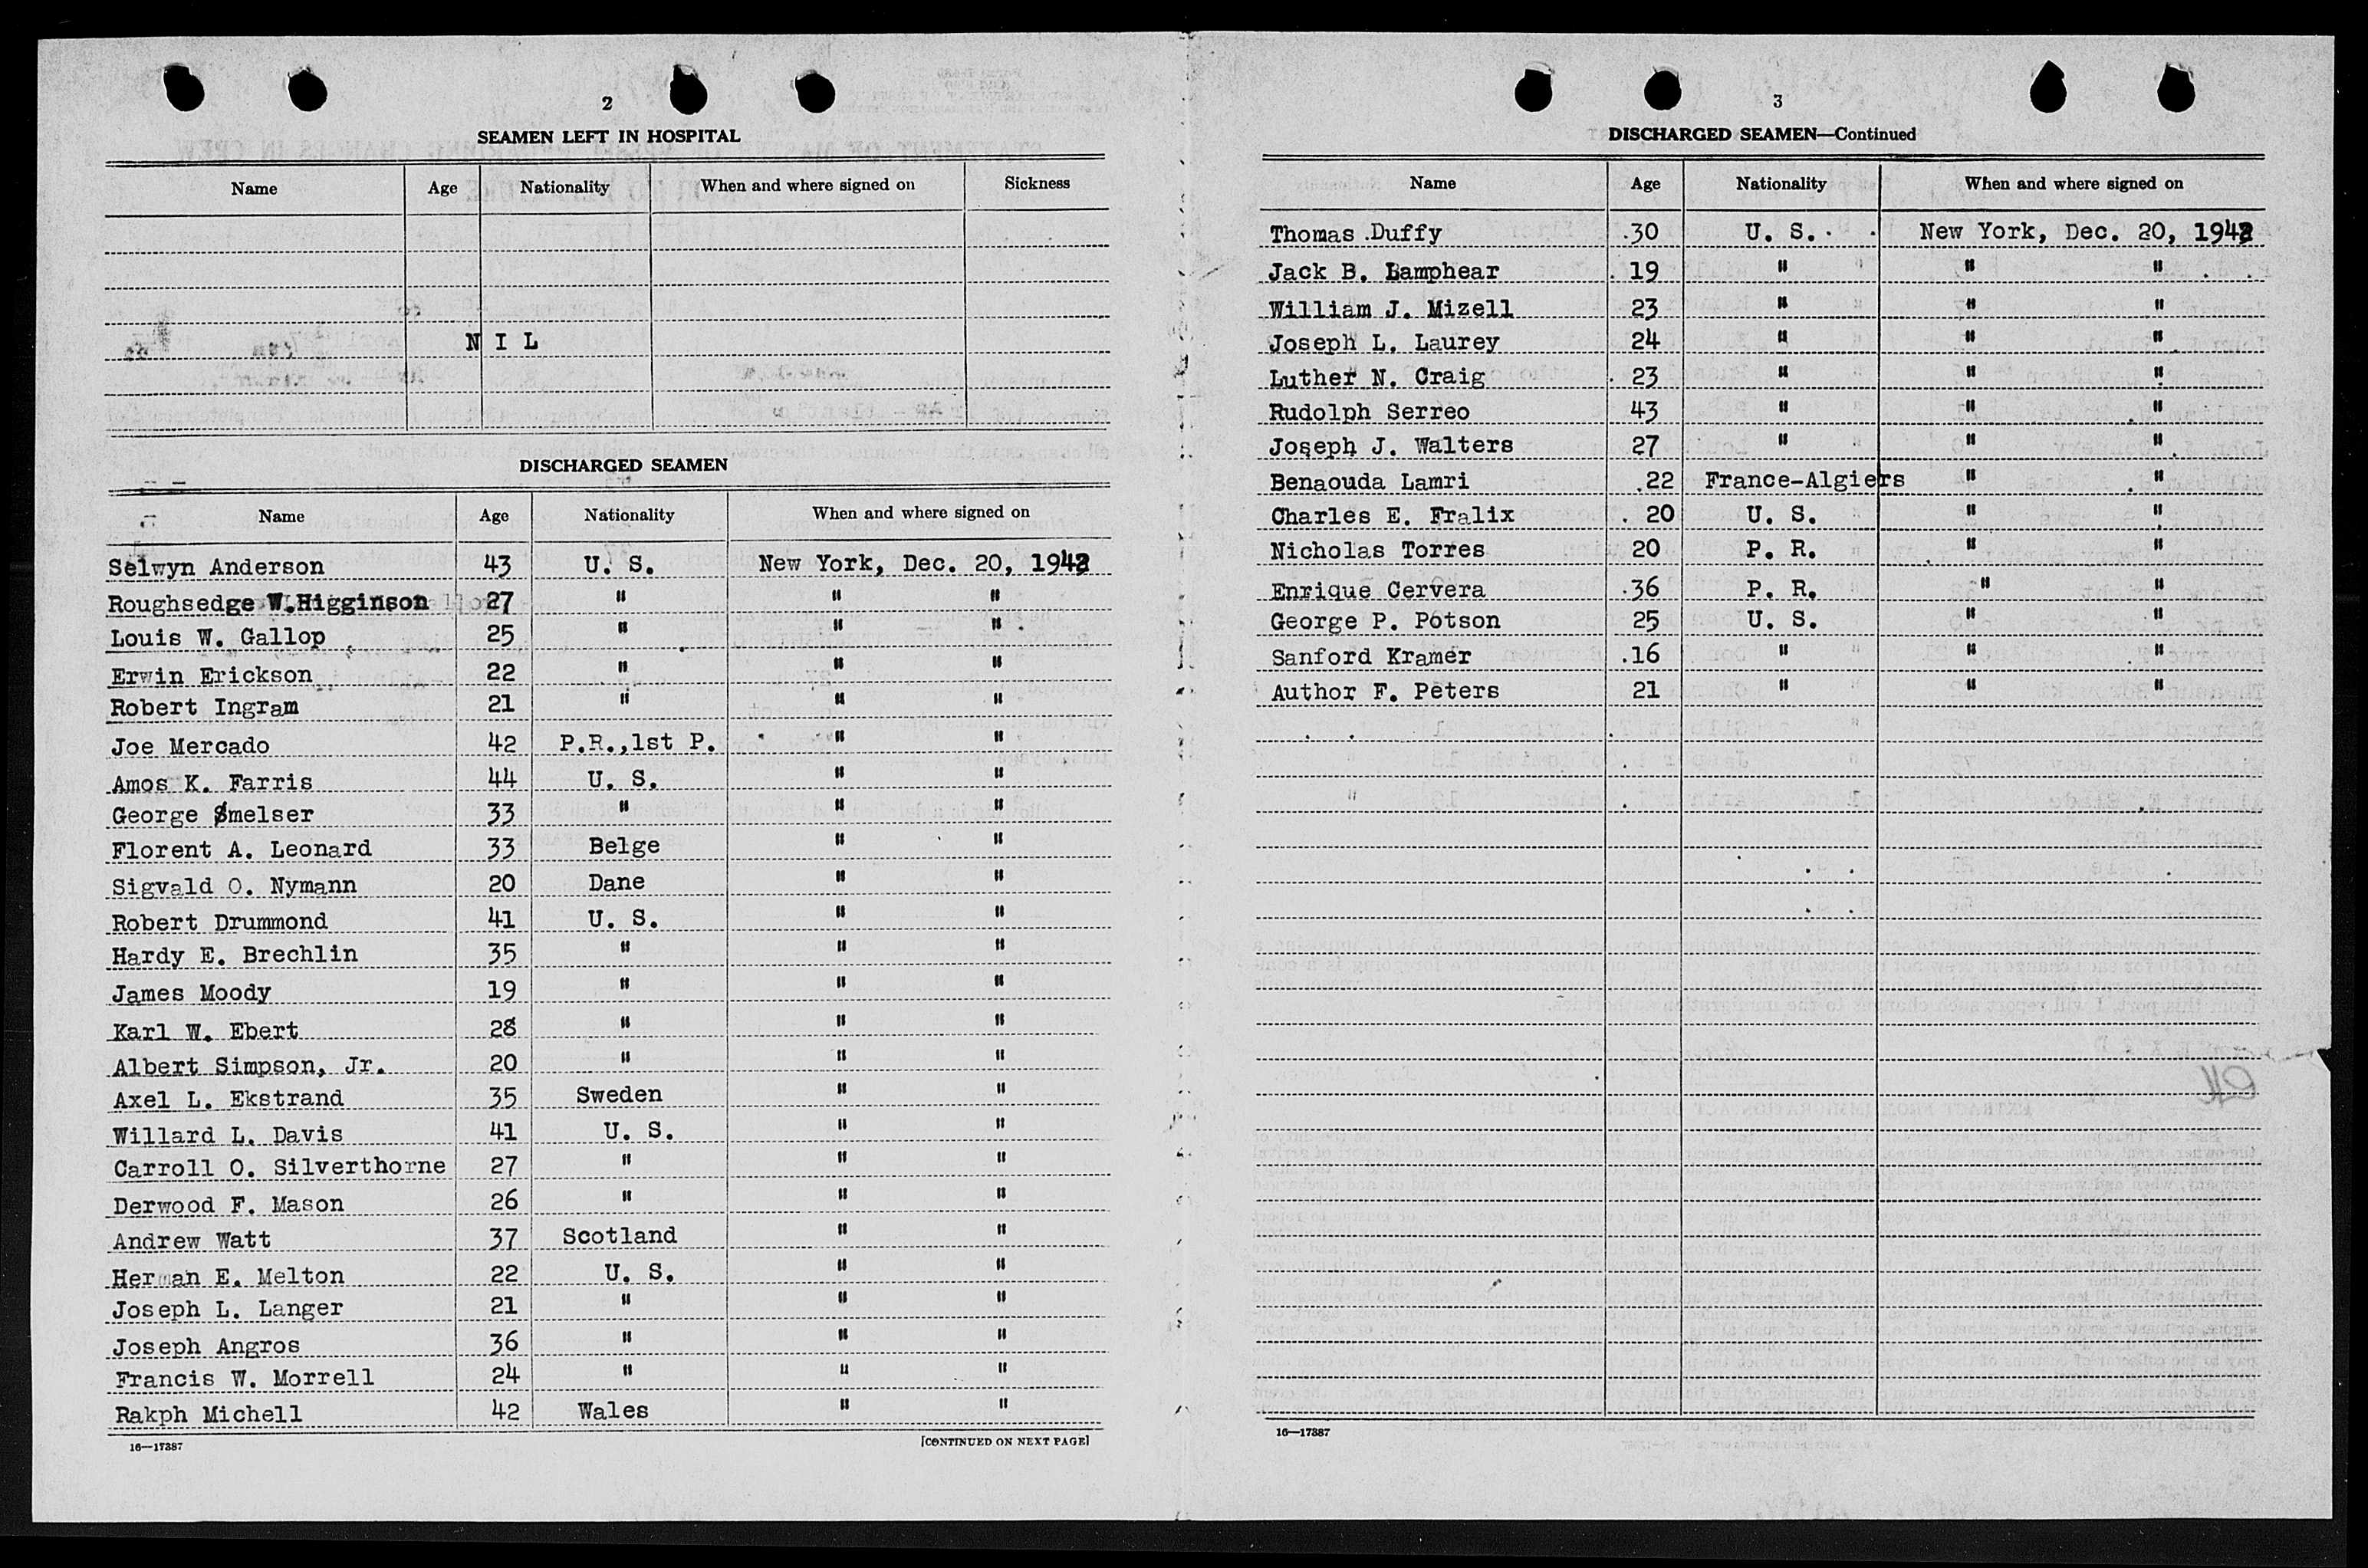 2
SEAMEN LEFT IN HOSPITAL
Name Age Nationality When and where signed on Sickness
N I L
DISCHARGED SEAMEN
Name Age Nationality When and where signed on
Selwyn Anderson 43 U. S. New York, Dec. 20, 1942
Roughsedge W.Higginson 27 " " "
Louis W. Gallop 25 " " "
Erwin Erickson 22 " " "
Robert Ingram 21 " " "
Joe Mercado 42 P.R.,1st P. " "
Amos K. Farris 44 U. S. " "
George Smelser 33 " " "
Florent A. Leonard 33 Belge " "
Sigvald O. Nymann 20 Dane " "
Robert Drummond 41 U. S. " "
Hardy E. Brechlin 35 " " "
James Moody 19 " " "
Karl W. Ebert 28 " " "
Albert Simpson, Jr. 20 " " "
Axel L. Ekstrand 35 Sweden " "
Willard L. Davis 41 U. S. " "
Carroll O. Silverthorne 27 " " "
Derwood F. Mason 26 " " "
Andrew Watt 37 Scotland " "
Herman E. Melton 22 U. S. " "
Joseph L. Langer 21 " " "
Joseph Angros 36 " " "
Francis W. Morrell 24 " " "
Rakph Michell 42 Wales " "
16—17387 [CONTINUED ON NEXT PAGE]
3
DISCHARGED SEAMEN—Continued
Name Age Nationality When and where signed on
Thomas Duffy 30 U. S. New York, Dec. 20, 1942
Jack B. Lamphear 19 " " "
William J. Mizell 23 " " "
Joseph L. Laurey 24 " " "
Luther N. Craig 23 " " "
Rudolph Serreo 43 " " "
Joseph J. Walters 27 " " "
Benaouda Lamri 22 France-Algiers " "
Charles E. Fralix 20 U. S. " "
Nicholas Torres 20 P. R. " "
Enrique Cervera 36 P. R. " "
George P. Potson 25 U. S. " "
Sanford Kramer 16 " " "
Author F. Peters 21 " " "
16—17387